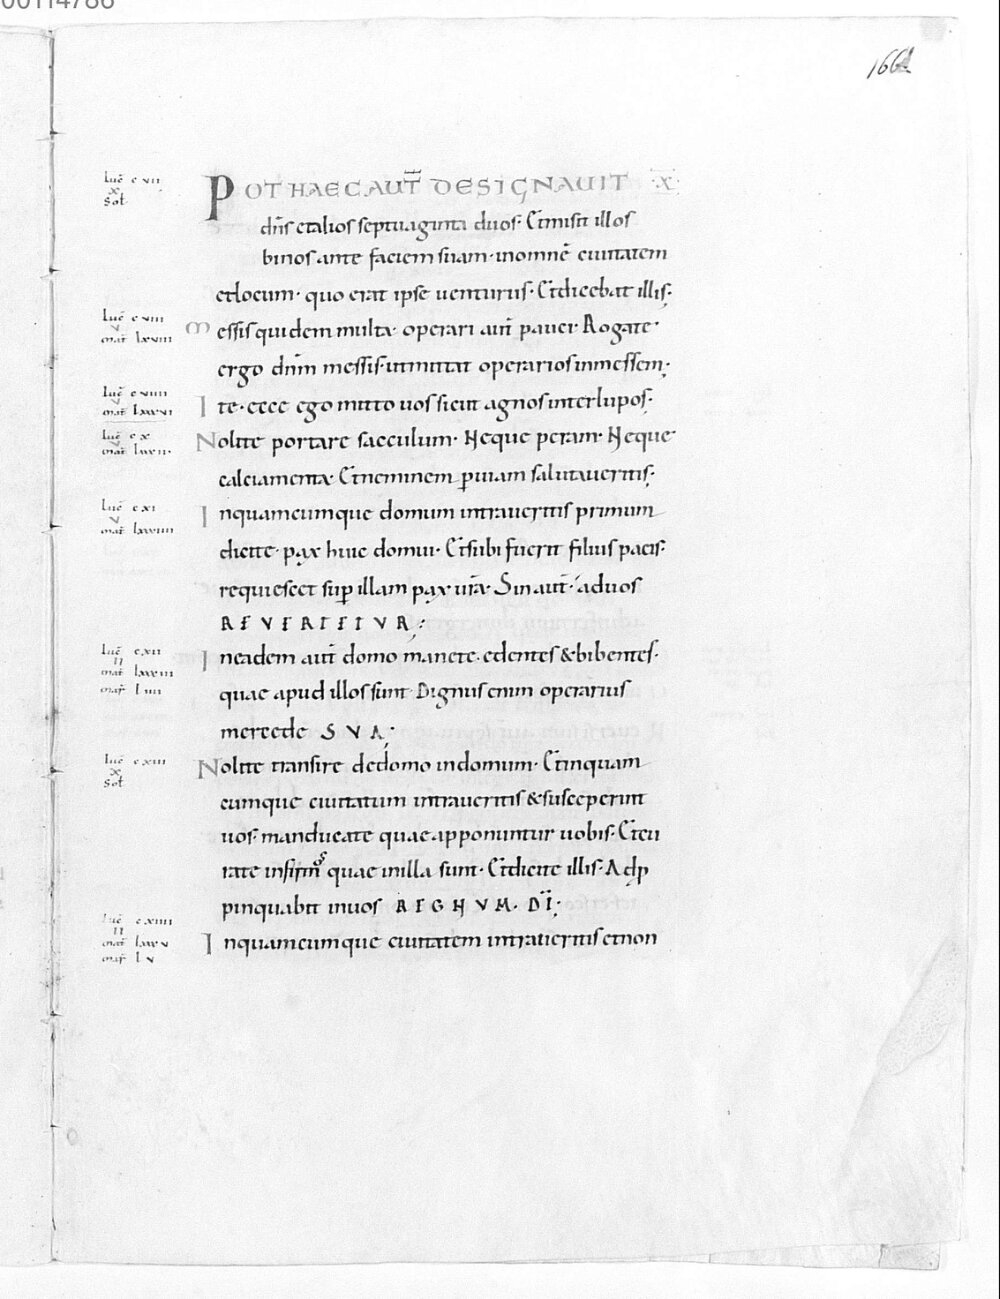 00114786
166
POT HAEC AUT̄ DESIGNAUIT · X ·
dn̄s etalios septuaginta duos· Et misit illos
binos ante faciem suam· inomnē ciuitatem
etlocum· quo erat ipse uenturus· Et dicebat illis;
luc̄ c vii
x
sol̄
luc̄ c viii
v
mat̄ lxviii
messis quidem multa· operari aut̄ pauci Rogate·
ergo dn̄m messis· utmittat operarios inmessem;
luc̄ c viiii
v
mat̄ lxxxvi
Ite· ecce ego mitto uos sicut agnos interlupos;
luc̄ c x
Nolite portare sacculum· Neque peram· Neque
calciamenta· Et neminem p uiam salutaueritis;
luc̄ c xi
v
mat̄ lxxxiiii
Inquamcumque domum intraueritis primum
dicite· pax huic domui· Et siibi fuerit filius pacis·
requiescet sup illam pax ur̄a· Sin aut̄· aduos
REVERTETVR;
luc̄ c xii
ii
mar̄ l iiii
Ineadem aut̄ domo manete· edentes & bibentes·
quae apud illos sunt· Dignus enim operarius
mercede SVA;
luc̄ c xiii
x
sol̄
Nolite transire dedomo indomum· Et inquam
cumque ciuitatum intraueritis & susceperint
uos· manducate quae apponuntur uobis· Et cu
rate infirmos quae inilla sunt· Et dicite illis· Adp
pinquabit inuos REGNVM· DĪ;
luc̄ c xiiii
ii
mat̄ lxxxv
mar̄ l v
Inquamcumque ciuitatem intraueritis etnon